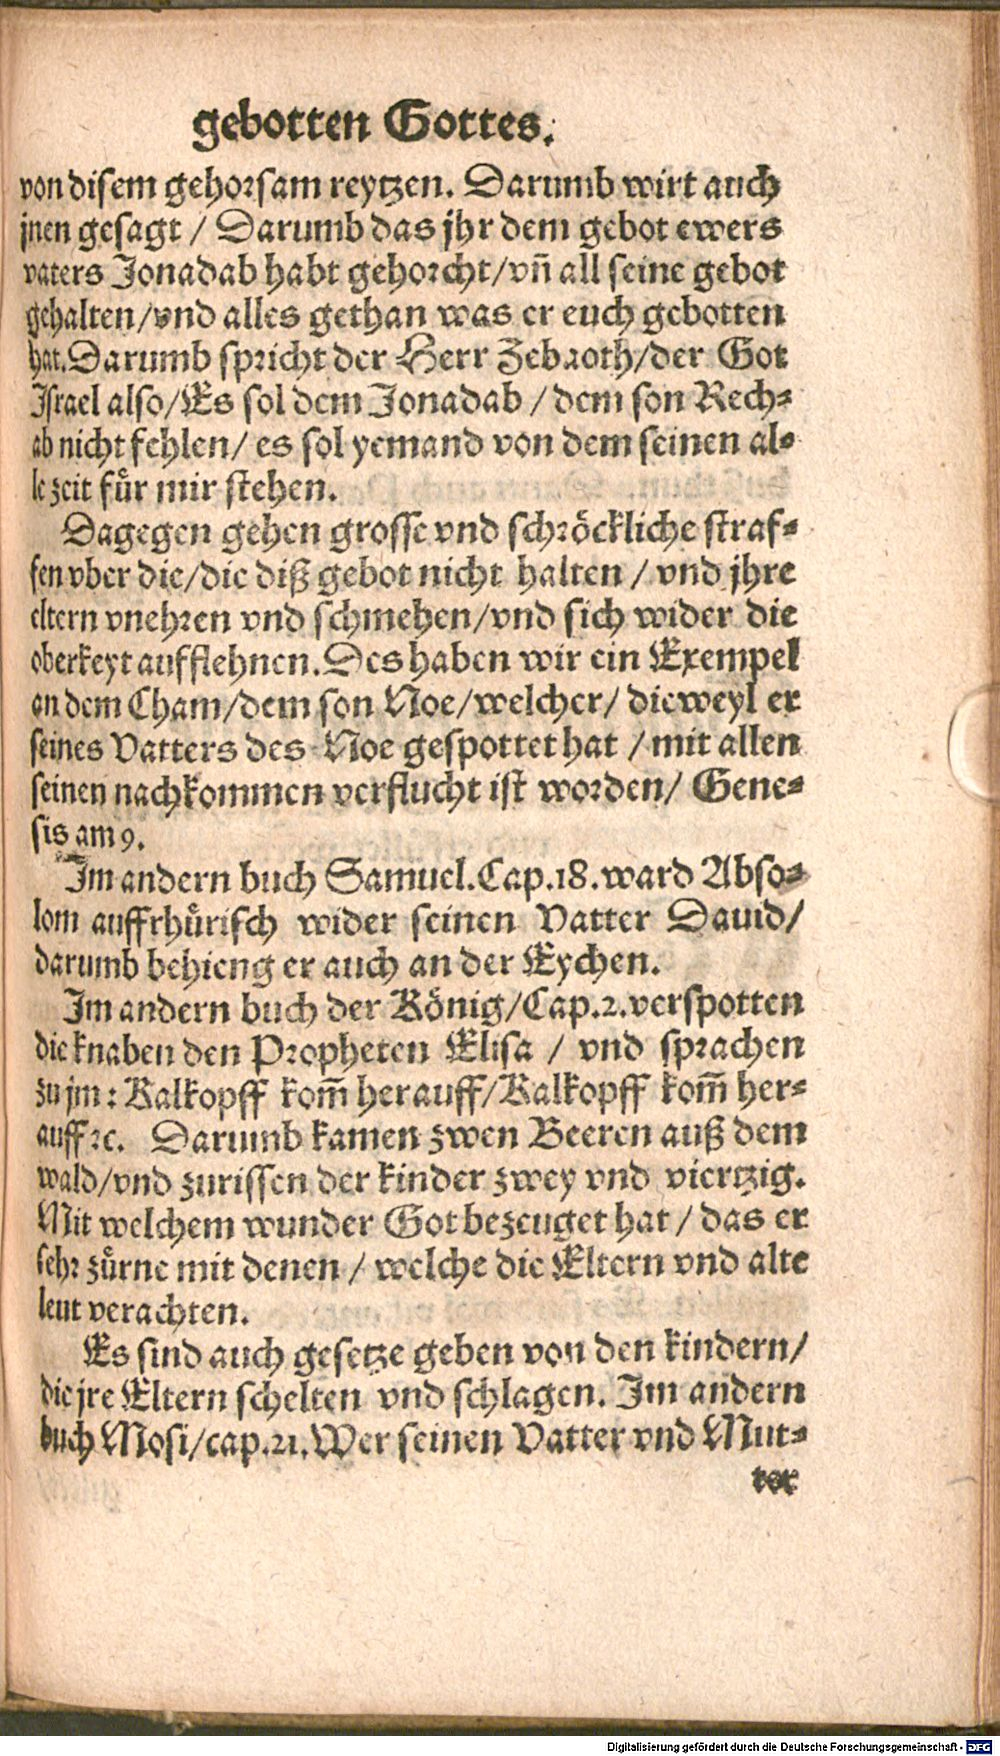 gebotten Gottes.
von disem gehorsam reytzen. Darumb wirt auch
jnen gesagt / Darumb das jhr dem gebot ewers
vaters Jonadab habt gehorcht/vñ all seine gebot
gehalten/vnd alles gethan was er euch gebotten
hat. Darumb spricht der Herr Zebaoth/der Got
Israel also/Es sol dem Jonadab / dem son Rech-
ab nicht fehlen/ es sol yemand von dem seinen al-
le zeit fuͤr mir stehen.
Dagegen gehen grosse vnd schröckliche straf-
fen vber die/die diß gebot nicht halten / vnd jhre
eltern vnehren vnd schmehen/vnd sich wider die
oberkeyt aufflehnen. Des haben wir ein Exempel
an dem Cham/dem son Noe/welcher/ dieweyl er
seines Vatters des Noe gespottet hat / mit allen
seinen nachkommen verflucht ist worden/ Gene-
sis am 9.
Im andern buch Samuel. Cap. 18. ward Abso-
lom auffrhuͤrisch wider seinen Vatter Dauid/
darumb behieng er auch an der Eychen.
Im andern buch der König/Cap. 2. verspotten
die knaben den Propheten Elisa / vnd sprachen
zu jm: Kalkopff kom̃ herauff/Kalkopff kom̃ her-
auff ꝛc. Darumb kamen zwen Beeren auß dem
wald/vnd zurissen der kinder zwey vnd viertzig.
Mit welchem wunder Got bezeuget hat / das er
sehr zuͤrne mit denen / welche die Eltern vnd alte
leut verachten.
Es sind auch gesetze geben von den kindern/
die jre Eltern schelten vnd schlagen. Im andern
buch Mosi/cap. 21. Wer seinen Vatter vnd Mut-
ter
Digitalisierung gefördert durch die Deutsche Forschungsgemeinschaft - DFG